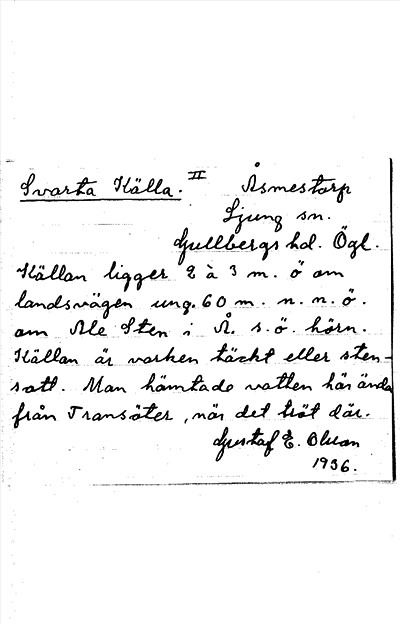 Svarta Källa. II Åsmestorp
Ljung sn.
Gullbergs hd. Ögl.
Källan ligger 2 à 3 m. ö om
landsvägen ung. 60 m. n. n. ö.
om Ale Sten i Å. s. ö. hörn.
Källan är varken täckt eller sten-
satt. Man hämtade vatten här ända
från Transäter, när det tröt där.
Gustaf E.
1936.